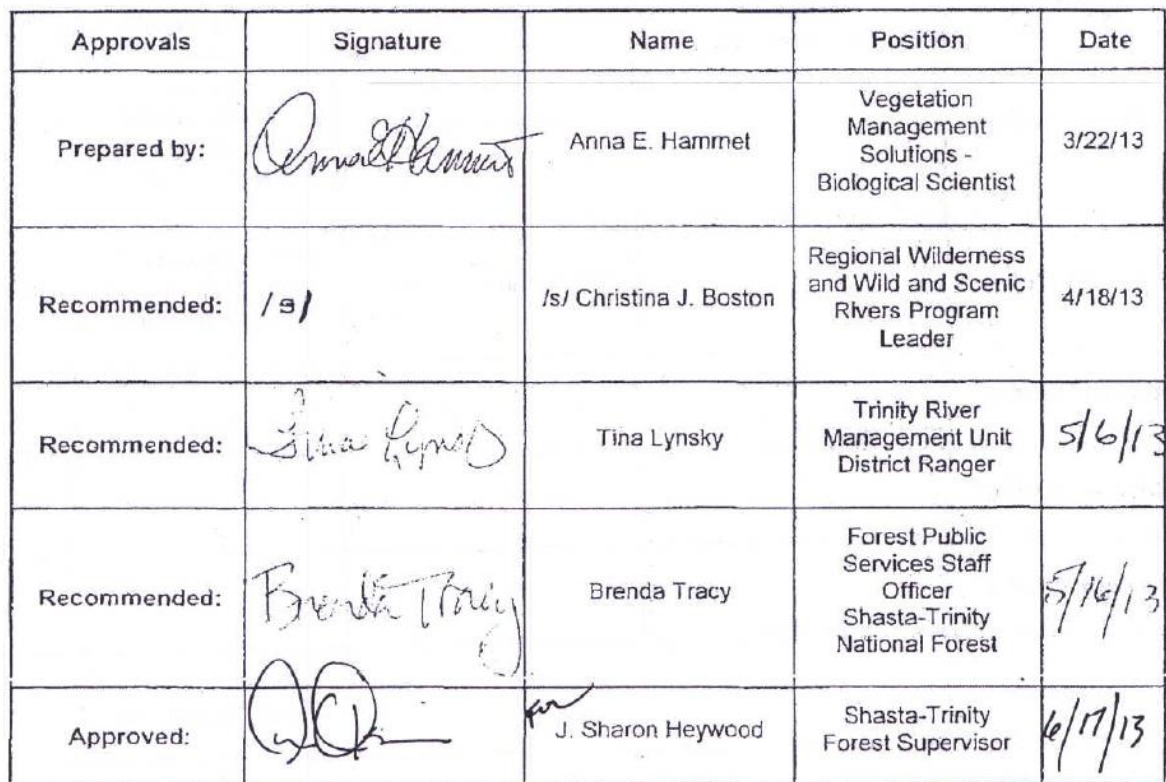 Approvals Signature Name Position Date
Prepared by: Anna E Hammet Anna E. Hammet Vegetation
Management
Solutions -
Biological Scientist 3/22/13
Recommended: /s/ /s/ Christina J. Boston Regional Wilderness
and Wild and Scenic
Rivers Program
Leader 4/18/13
Recommended: Tina Lynsky Tina Lynsky Trinity River
Management Unit
District Ranger 5/6/13
Recommended: Brenda Tracy Brenda Tracy Forest Public
Services Staff
Officer
Shasta-Trinity
National Forest 5/16/13
Approved: for J. Sharon Heywood Shasta-Trinity
Forest Supervisor 6/17/13